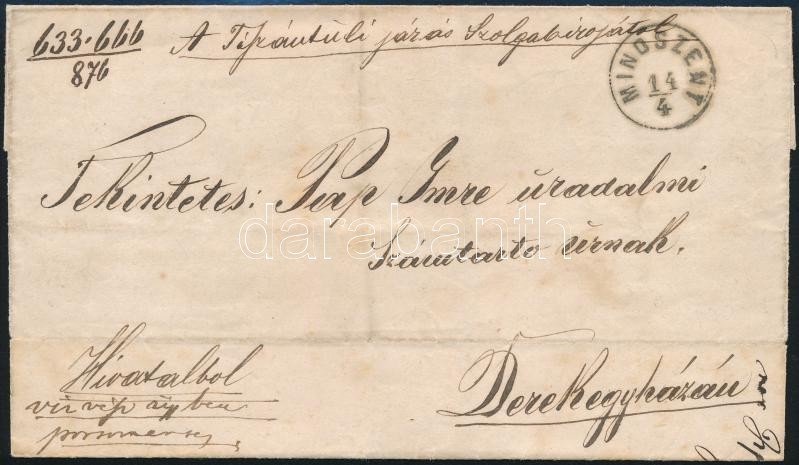 633·666
876
A Tiszántúli járás Szolgabirojátol
MINDSZENT
14
4
Tekintetes: Pap Imre úradalmi
Számtarto úrnak.
darabanth
Hivatalbol
Derekegyházán